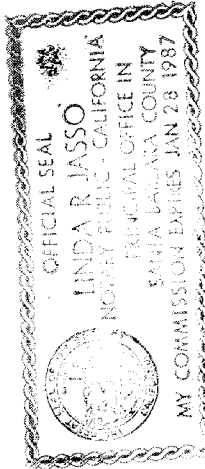 OFFICIAL SEAL
LINDA R JASSO
NOTARY PUBLIC - CALIFORNIA
PRINCIPAL OFFICE IN
SANTA BARBARA COUNTY
MY COMMISSION EXPIRES JAN 28 1987